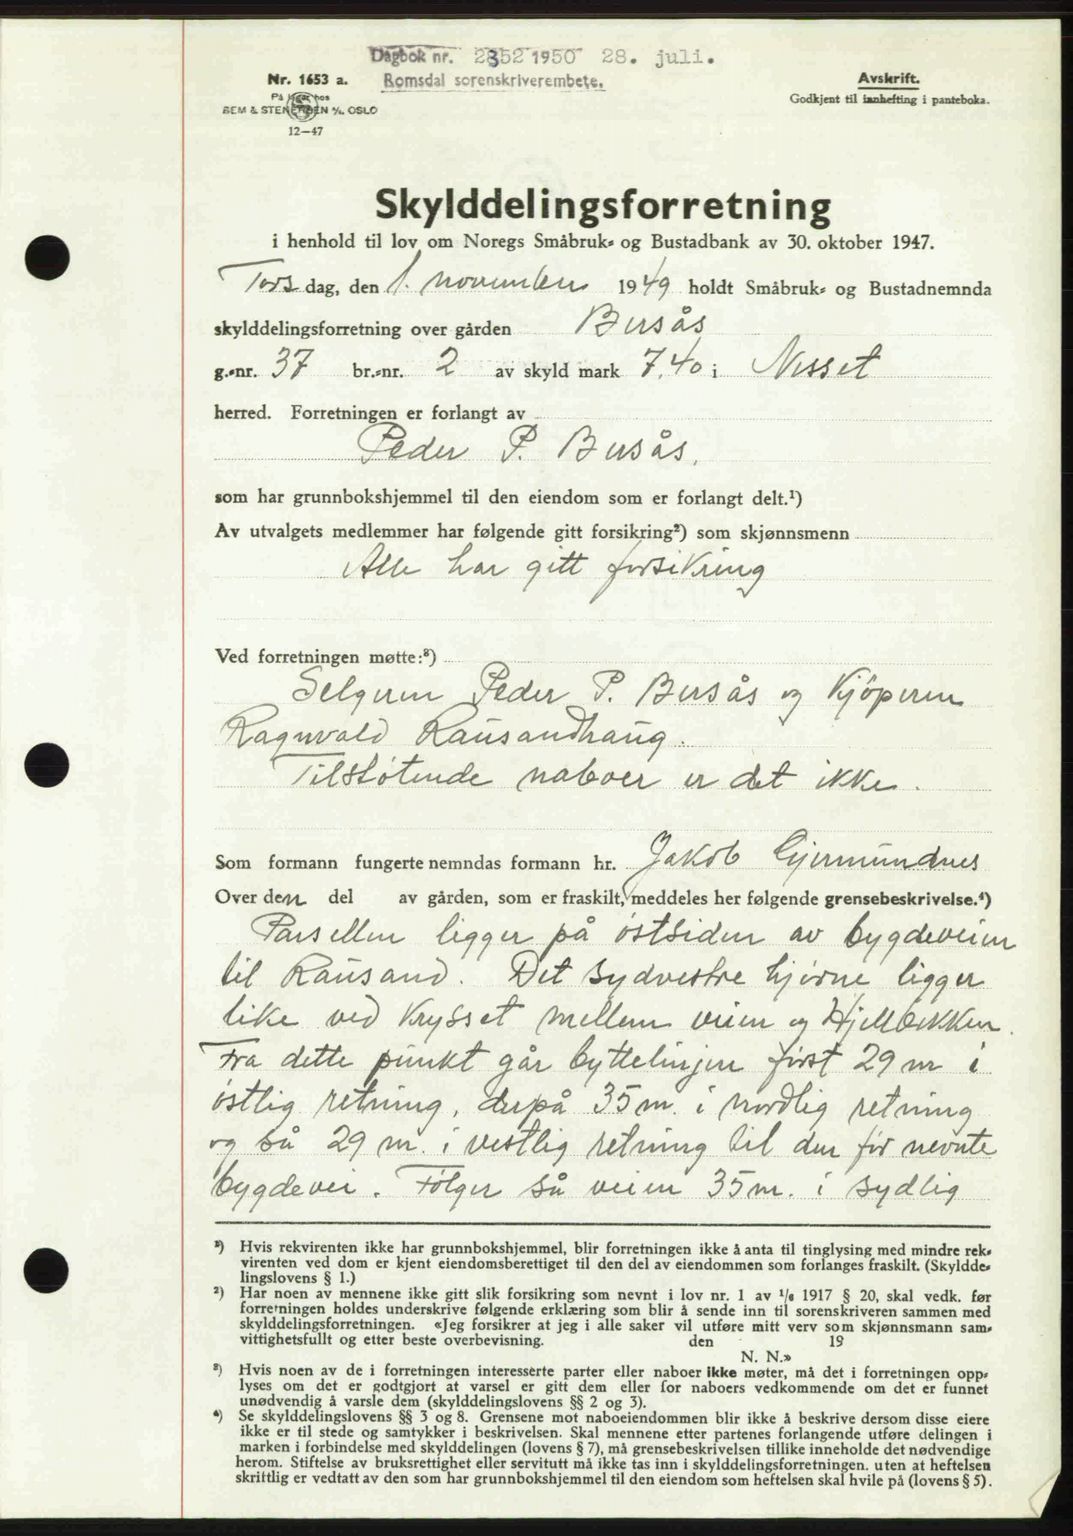 Dagbok nr. 2352 1950 28. juli.
Romsdal sorenskriverembete.
Nr. 1653 a.
På lager hos
SEM & STENERSEN A/S. OSLO
12—47
Avskrift.
Godkjent til innhefting i panteboka.
Skylddelingsforretning
i henhold til lov om Noregs Småbruk- og Bustadbank av 30. oktober 1947.
Tors dag, den 1. november 1949 holdt Småbruk- og Bustadnemnda
skylddelingsforretning over gården Bersås
g.-nr. 37 br.-nr. 2 av skyld mark 7,40 i Nesset
herred. Forretningen er forlangt av
Peder P. Bersås.
som har grunnbokshjemmel til den eiendom som er forlangt delt.¹)
Av utvalgets medlemmer har følgende gitt forsikring²) som skjønnsmenn
Alle har gitt forsikring
Ved forretningen møtte:³)
Selgeren Peder P. Bersås og kjøperen
Ragnvald Rausandhaug.
Tilstøtende naboer er det ikke.
Som formann fungerte nemndas formann hr. Jakob Gjermundnes
Over den del av gården, som er fraskilt, meddeles her følgende grensebeskrivelse.⁴)
Parsellen ligger på østsiden av bygdeveien
til Rausand. Det sydvestre hjørne ligger
like ved krysset mellem veien og Hjellbekken.
Fra dette punkt går byttelinjen først 29 m i
østlig retning, derpå 35 m. i nordlig retning
og så 29 m. i vestlig retning til den før nevnte
bygdevei. Følger så veien 35 m. i sydlig
¹) Hvis rekvirenten ikke har grunnbokshjemmel, blir forretningen ikke å anta til tinglysing med mindre rek-
virenten ved dom er kjent eiendomsberettiget til den del av eiendommen som forlanges fraskilt. (Skyldde-
lingslovens § 1.)
²) Har noen av mennene ikke gitt slik forsikring som nevnt i lov nr. 1 av ¹/₆ 1917 § 20, skal vedk. før
forretningen holdes underskrive følgende erklæring som blir å sende inn til sorenskriveren sammen med
skylddelingsforretningen. «Jeg forsikrer at jeg i alle saker vil utføre mitt verv som skjønnsmann sam-
vittighetsfullt og etter beste overbevisning. den 19
N. N.»
³) Hvis noen av de i forretningen interesserte parter eller naboer ikke møter, må det i forretningen opp-
lyses om det er godtgjort at varsel er gitt dem eller for naboers vedkommende om det er funnet
unødvendig å varsle dem (skylddelingslovens §§ 2 og 3).
⁴) Se skylddelingslovens §§ 3 og 8. Grensene mot naboeiendommen blir ikke å beskrive dersom disse eiere
ikke er til stede og samtykker i beskrivelsen. Skal mennene etter partenes forlangende utføre delingen i
marken i forbindelse med skylddelingen (lovens § 7), må grensebeskrivelsen tillike inneholde det nødvendige
herom. Stiftelse av bruksrettighet eller servitutt må ikke tas inn i skylddelingsforretningen. uten at heftelsen
skriftlig er vedtatt av den som har grunnbokshjemmel til den eiendom som heftelsen skal hvile på (lovens § 5).